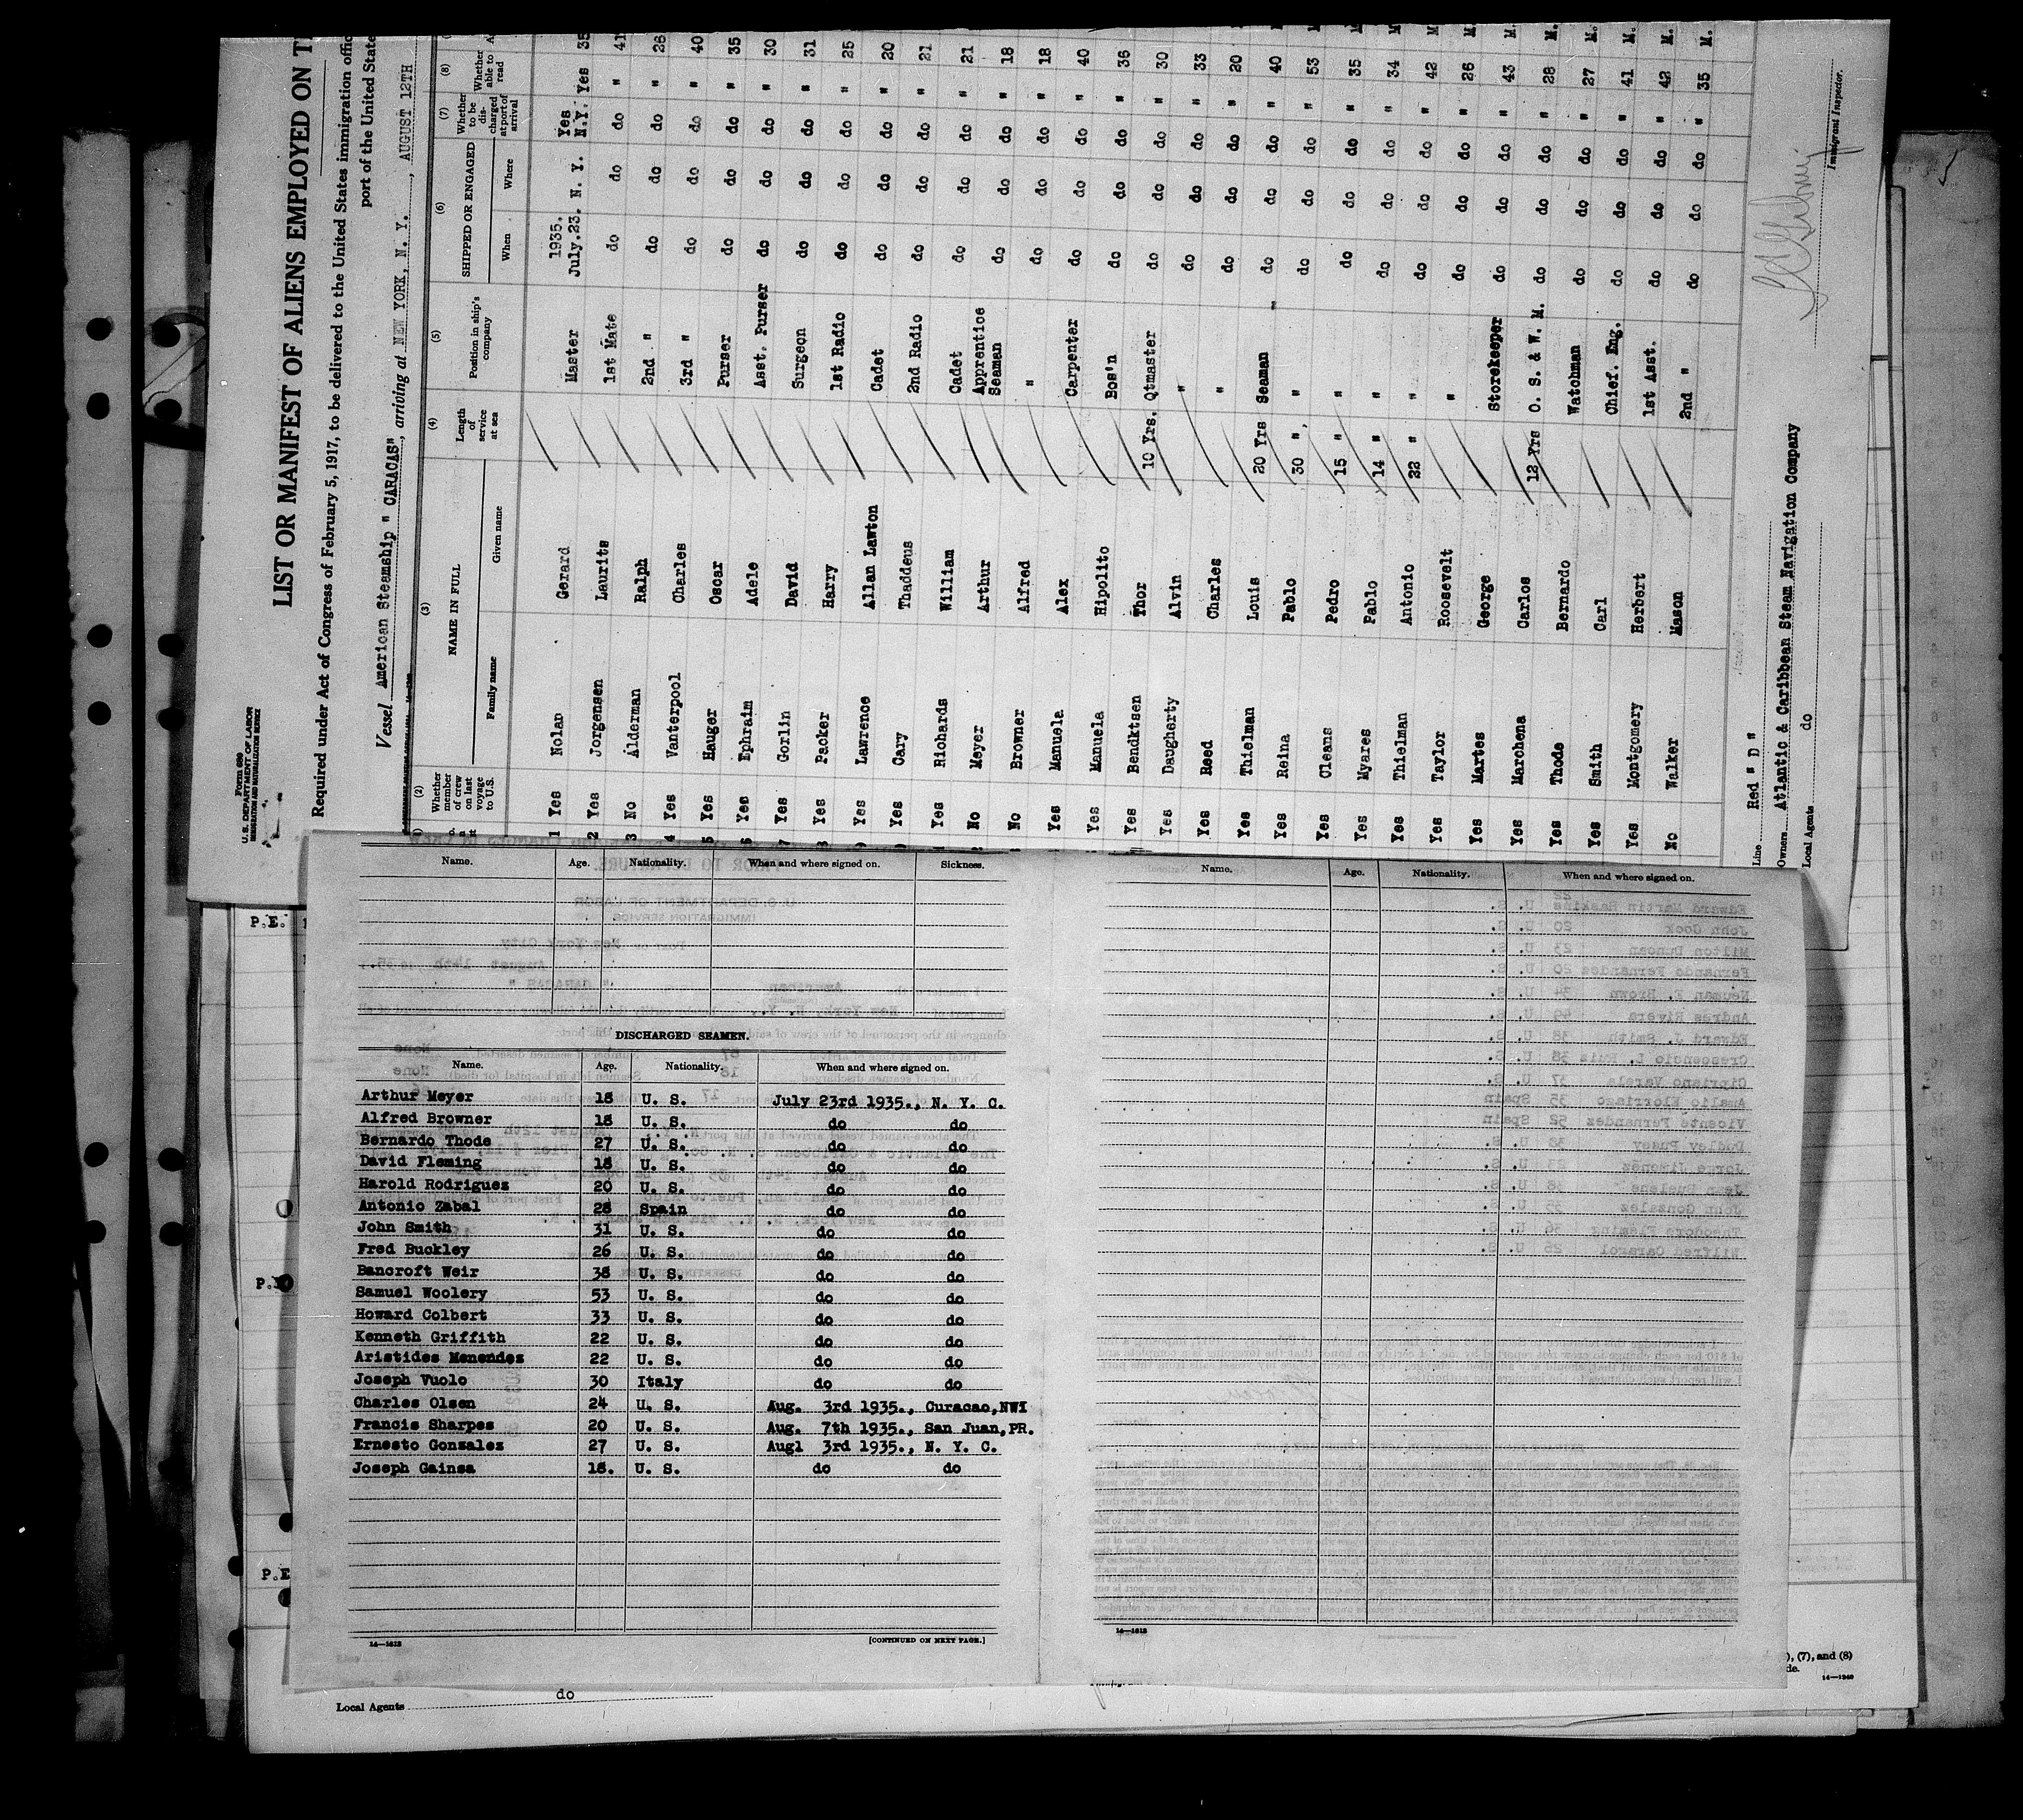 Form 680
U. S. DEPARTMENT OF LABOR
IMMIGRATION AND NATURALIZATION SERVICE
LIST OR MANIFEST OF ALIENS EMPLOYED ON T
Required under Act of Congress of February 5, 1917, to be delivered to the United States immigration offic
port of the United State
Vessel American Steamship " CARACAS", arriving at NEW YORK, N. Y., AUGUST 12TH
(2) Whether member of crew on last voyage to U.S.
(3) NAME IN FULL
Family name Given name
(4) Length of service at sea
(5) Position in ship's company
(6) SHIPPED OR ENGAGED
When Where
(7) Whether to be discharged at port of arrival
(8) Whether able to read
1 Yes Nolan Gerard Master 1935. July.23. N. Y. Yes N.Y. Yes 35
2 Yes Jorgensen Laurits 1st Mate do do do " 41
3 No Alderman Ralph 2nd " do do do " 26
4 Yes Vanterpool Charles 3rd " do do do " 40
5 Yes Hauger Oscar Purser do do do " 35
6 Yes Ephraim Adele Asst. Purser do do do " 30
7 Yes Gorlin David Surgeon do do do " 31
Yes Packer Harry 1st Radio do do do " 25
Yes Lawrence Allan Lawton Cadet do do do " 20
Yes Cary Thaddeus 2nd Radio do do do " 21
Yes Richards William Cadet do do do " 21
No Meyer Arthur Apprentice Seaman do do do " 18
No Browner Alfred " do do do " 18
Yes Manuela Alex Carpenter do do do " 40
Yes Manuela Hipolito Bos'n do do do " 36
Yes Bendktsen Thor 10 Yrs. Qtmaster do do do " 30
Yes Daugherty Alvin " do do do " 33
Yes Reed Charles " do do do " 20
Yes Thielman Louis 20 Yrs Seaman do do do " 40
Yes Reina Pablo 30 " " do do do " 53
Yes Cleans Pedro 15 " " do do do " 35
Yes Myares Pablo 14 " " do do do " 34
Yes Thielman Antonio 22 " " do do do " 42
Yes Taylor Roosevelt " do do do " 26
Yes Martes George Storekeeper do do do " 43
Yes Marchena Carlos 12 Yrs O. S. & W. M. do do do " 28
Yes Thode Bernardo Watchman do do do " 27
Yes Smith Carl Chief. Eng. do do do " 41
Yes Montgomery Herbert 1st Asst. do do do " 42
No Walker Mason 2nd " do do do " 35 M.
Line Red " D "
Owners Atlantic & Caribbean Steam Navigation Company
Local Agents do
Immigrant Inspector.
Name. Age. Nationality. When and where signed on. Sickness.
DISCHARGED SEAMEN.
Name. Age. Nationality. When and where signed on.
Arthur Meyer 18 U. S. July 23rd 1935., N. Y. C.
Alfred Browner 18 U. S. do do
Bernardo Thode 27 U. S. do do
David Fleming 18 U. S. do do
Harold Rodrigues 20 U. S. do do
Antonio Zabal 28 Spain do do
John Smith 31 U. S. do do
Fred Buckley 26 U. S. do do
Bancroft Weir 38 U. S. do do
Samuel Woolery 53 U. S. do do
Howard Colbert 33 U. S. do do
Kenneth Griffith 22 U. S. do do
Aristides Menendez 22 U. S. do do
Joseph Vuolo 30 Italy do do
Charles Olsen 24 U. S. Aug. 3rd 1935., Curacao,NWI
Francis Sharpes 20 U. S. Aug. 7th 1935., San Juan,PR.
Ernesto Gonzalez 27 U. S. Augl 3rd 1935., N. Y. C.
Joseph Gainsa 18. U. S. do do
14—1618
[CONTINUED ON NEXT PAGE.]
Name. Age. Nationality. When and where signed on.
14—1618
P.E.
P.E
P.E
), (7), and (8)
de.
14—1240
Local Agents do